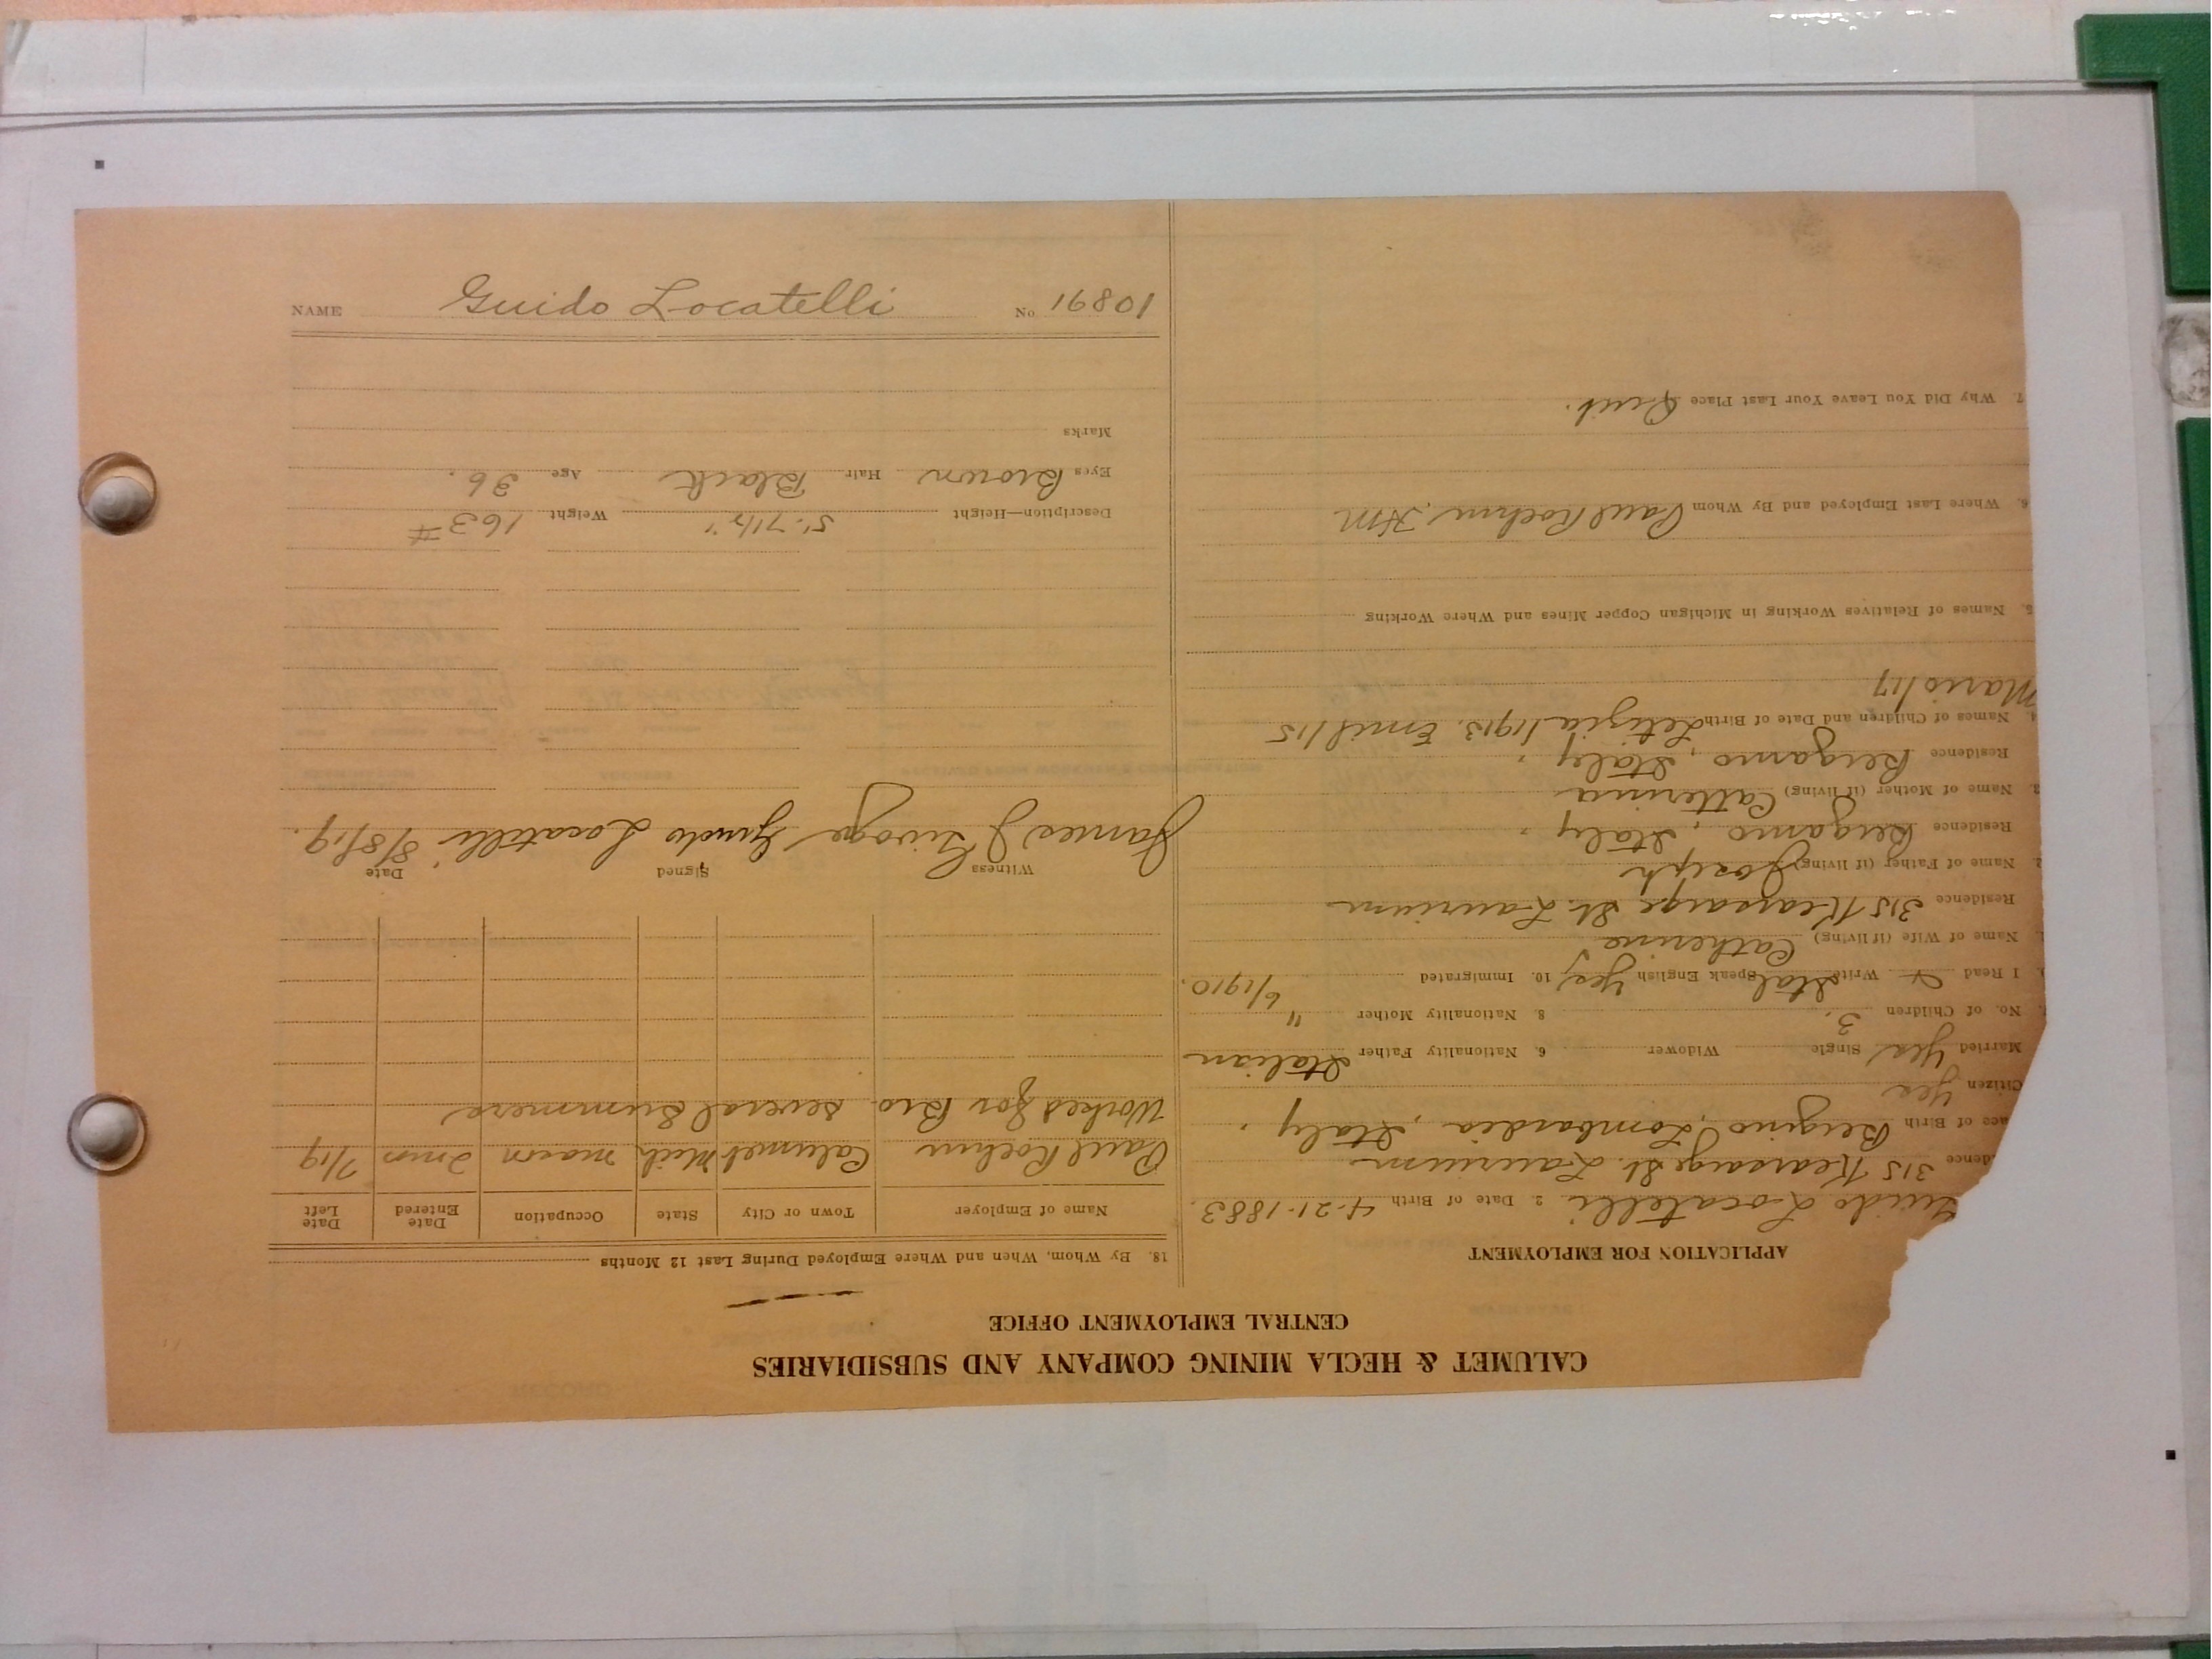 CALUMET & HECLA MINING COMPANY AND SUBSIDIARIES
CENTRAL EMPLOYMENT OFFICE
APPLICATION FOR EMPLOYMENT
Guido Locatelli 2. Date of Birth 4-21-1883.
dence 315 Kearsarge St. Laurium
ace of Birth Bergino, Lombardia, Italy.
Citizen Yes
Married Yes Single Widower 6. Nationality Father Italian
No. of Children 3. 8. Nationality Mother "
I Read & Write Ital Speak English Yes 10. Immigrated 6/1910.
Name of Wife (if living) Catherine
Residence 315 Kearsarge St. Laurium
2. Name of Father (if living) Joseph
Residence Bergamo, Italy.
3. Name of Mother (if living) Catterina
Residence Bergamo, Italy.
4. Names of Children and Date of Birth Letizia/1913. Emil/15
Mario/17
5. Names of Relatives Working in Michigan Copper Mines and Where Working
6. Where Last Employed and By Whom Paul Roehm,
7. Why Did You Leave Your Last Place Quit.
18. By Whom, When and Where Employed During Last 12 Months
Name of Employer Town or City State Occupation Date Entered Date Left
Paul Roehm Calumet Mich mason 2 mos 7/19
Worked for Bro. several summers
Witness Signed Date
James J Guido Locatelli 8/8/19.
Description—Height 5'-7 1/2" Weight 163 #
Eyes Brown Hair Black Age 36.
Marks
NAME Guido Locatelli No 10891